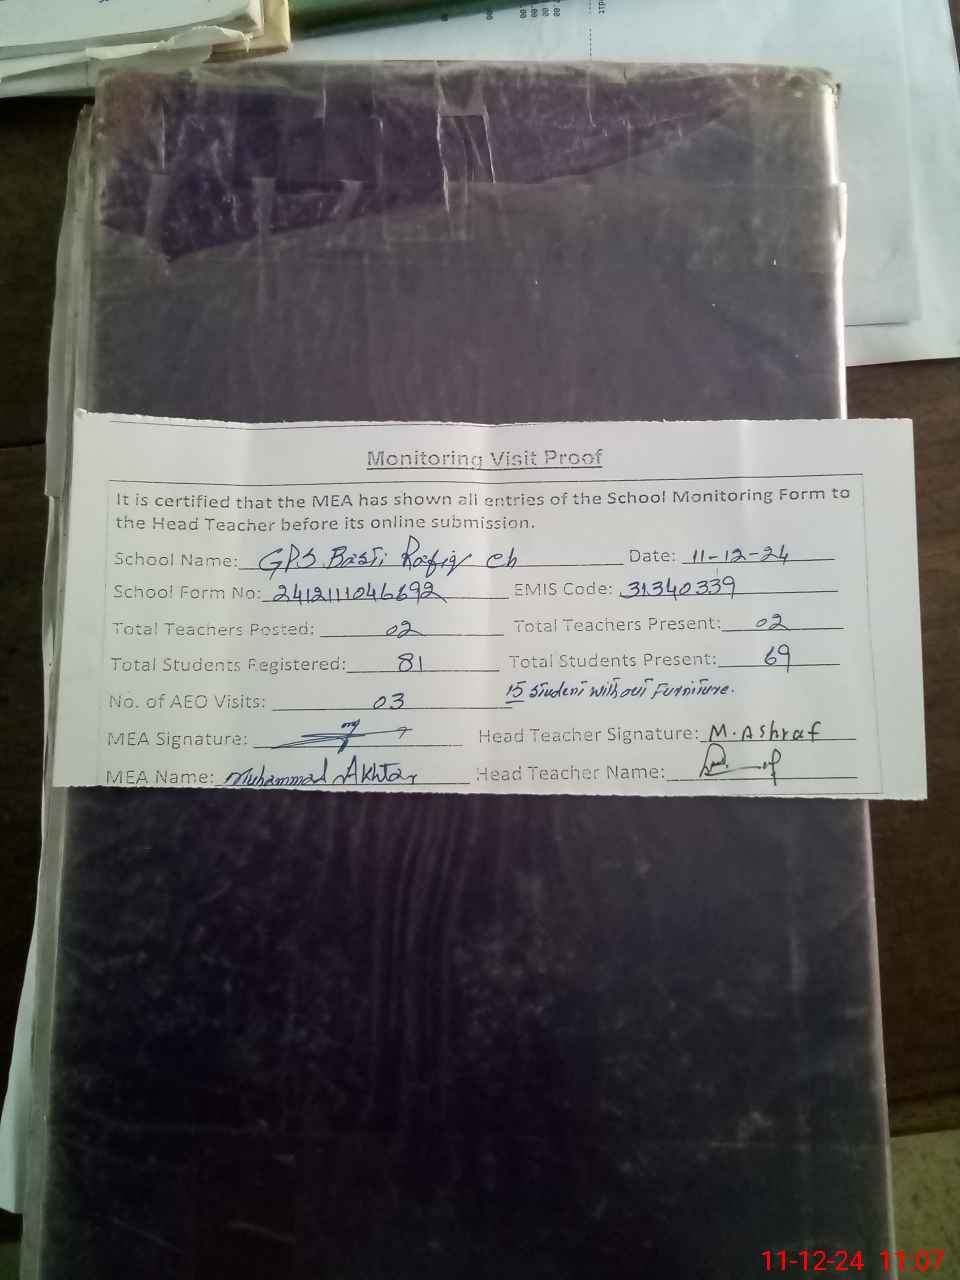 Monitoring Visit Proof
It is certified that the MEA has shown all entries of the School Monitoring Form to
the Head Teacher before its online submission.
School Name: GPS Basti Rafiq ch Date: 11-12-24
School Form No: 2412111046692 EMIS Code: 31340339
Total Teachers Posted: 02 Total Teachers Present: 02
Total Students Registered: 81 Total Students Present: 69
No. of AEO Visits: 03 15 Student without Furniture.
MEA Signature: Head Teacher Signature: M. Ashraf
MEA Name: Muhammad Akhtar Head Teacher Name:
11-12-24 11:07